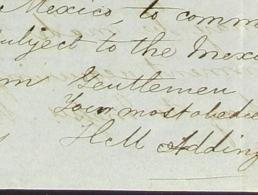 Mexico, to comm
subject to the Mexi
Gentlemen
Your most obedie
H M Adding